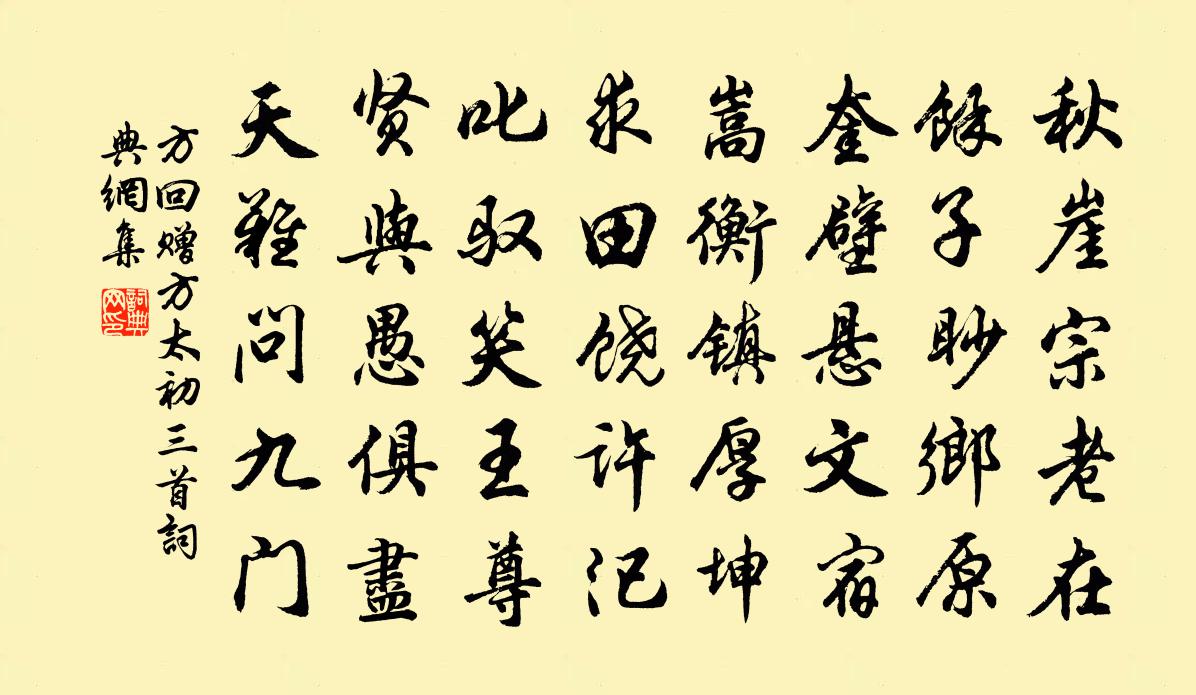 秋崖宗老在
餘子眇鄉原
奎壁悬文宿
嵩衡镇厚坤
求田饶许汜
叱驭笑王尊
贤與愚俱盡
天難问九门
方回赠方太初三首詞
典網集
詞典
网印